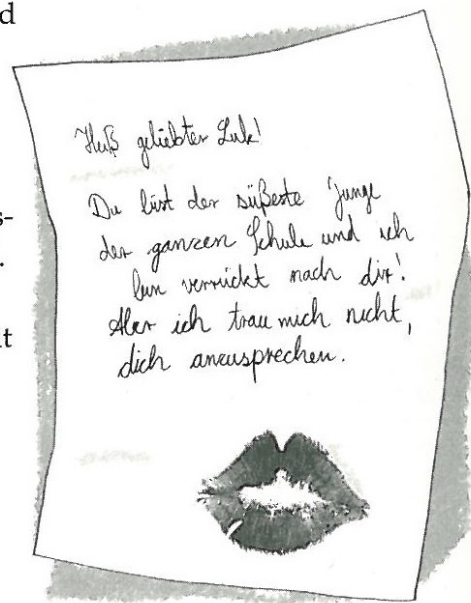 d
s-
.
t
Heiß geliebter Luk!
Du bist der süßeste Junge
der ganzen Schule und ich
bin verrückt nach dir!
Aber ich trau mich nicht,
dich anzusprechen.